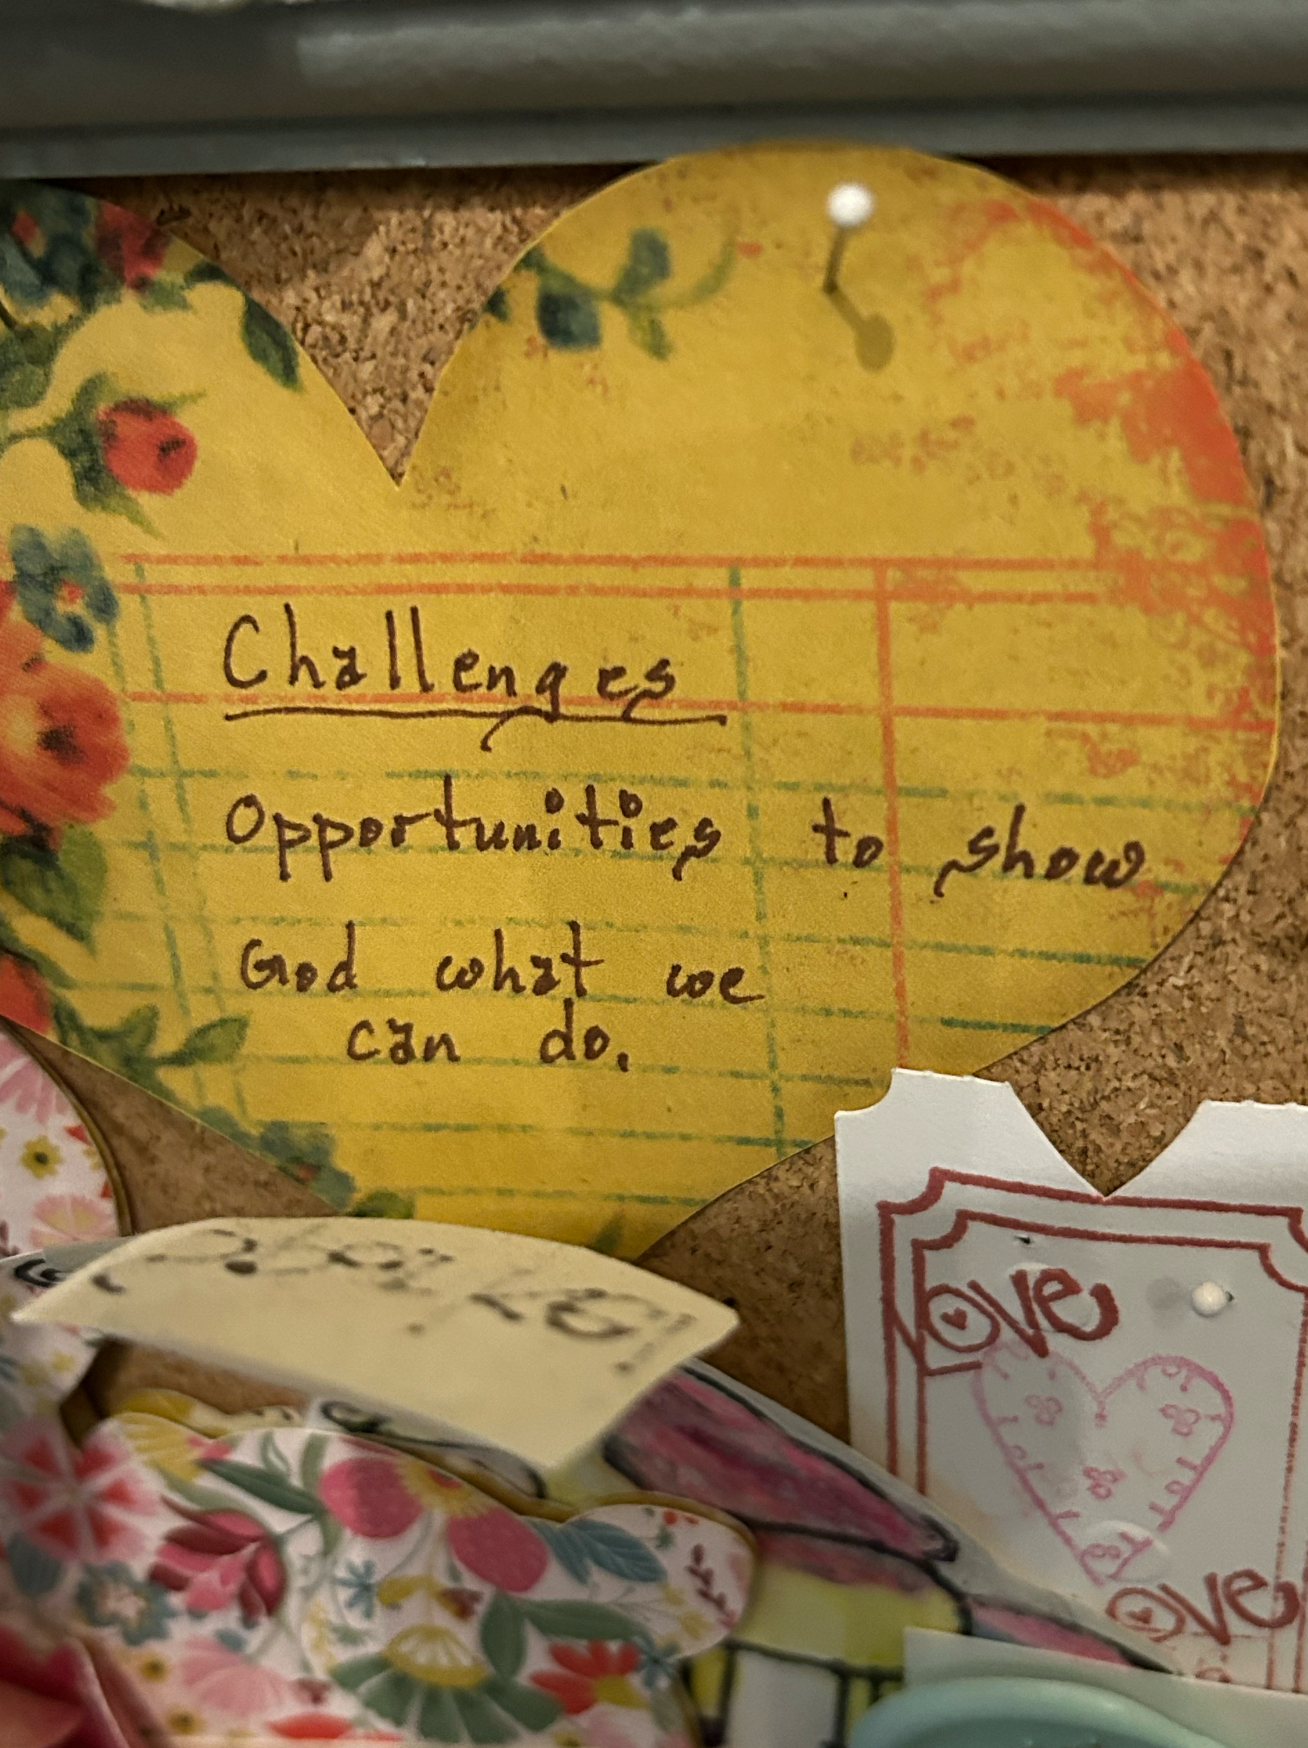 Challenges
Opportunities to show
God what we
can do.
Love
Love